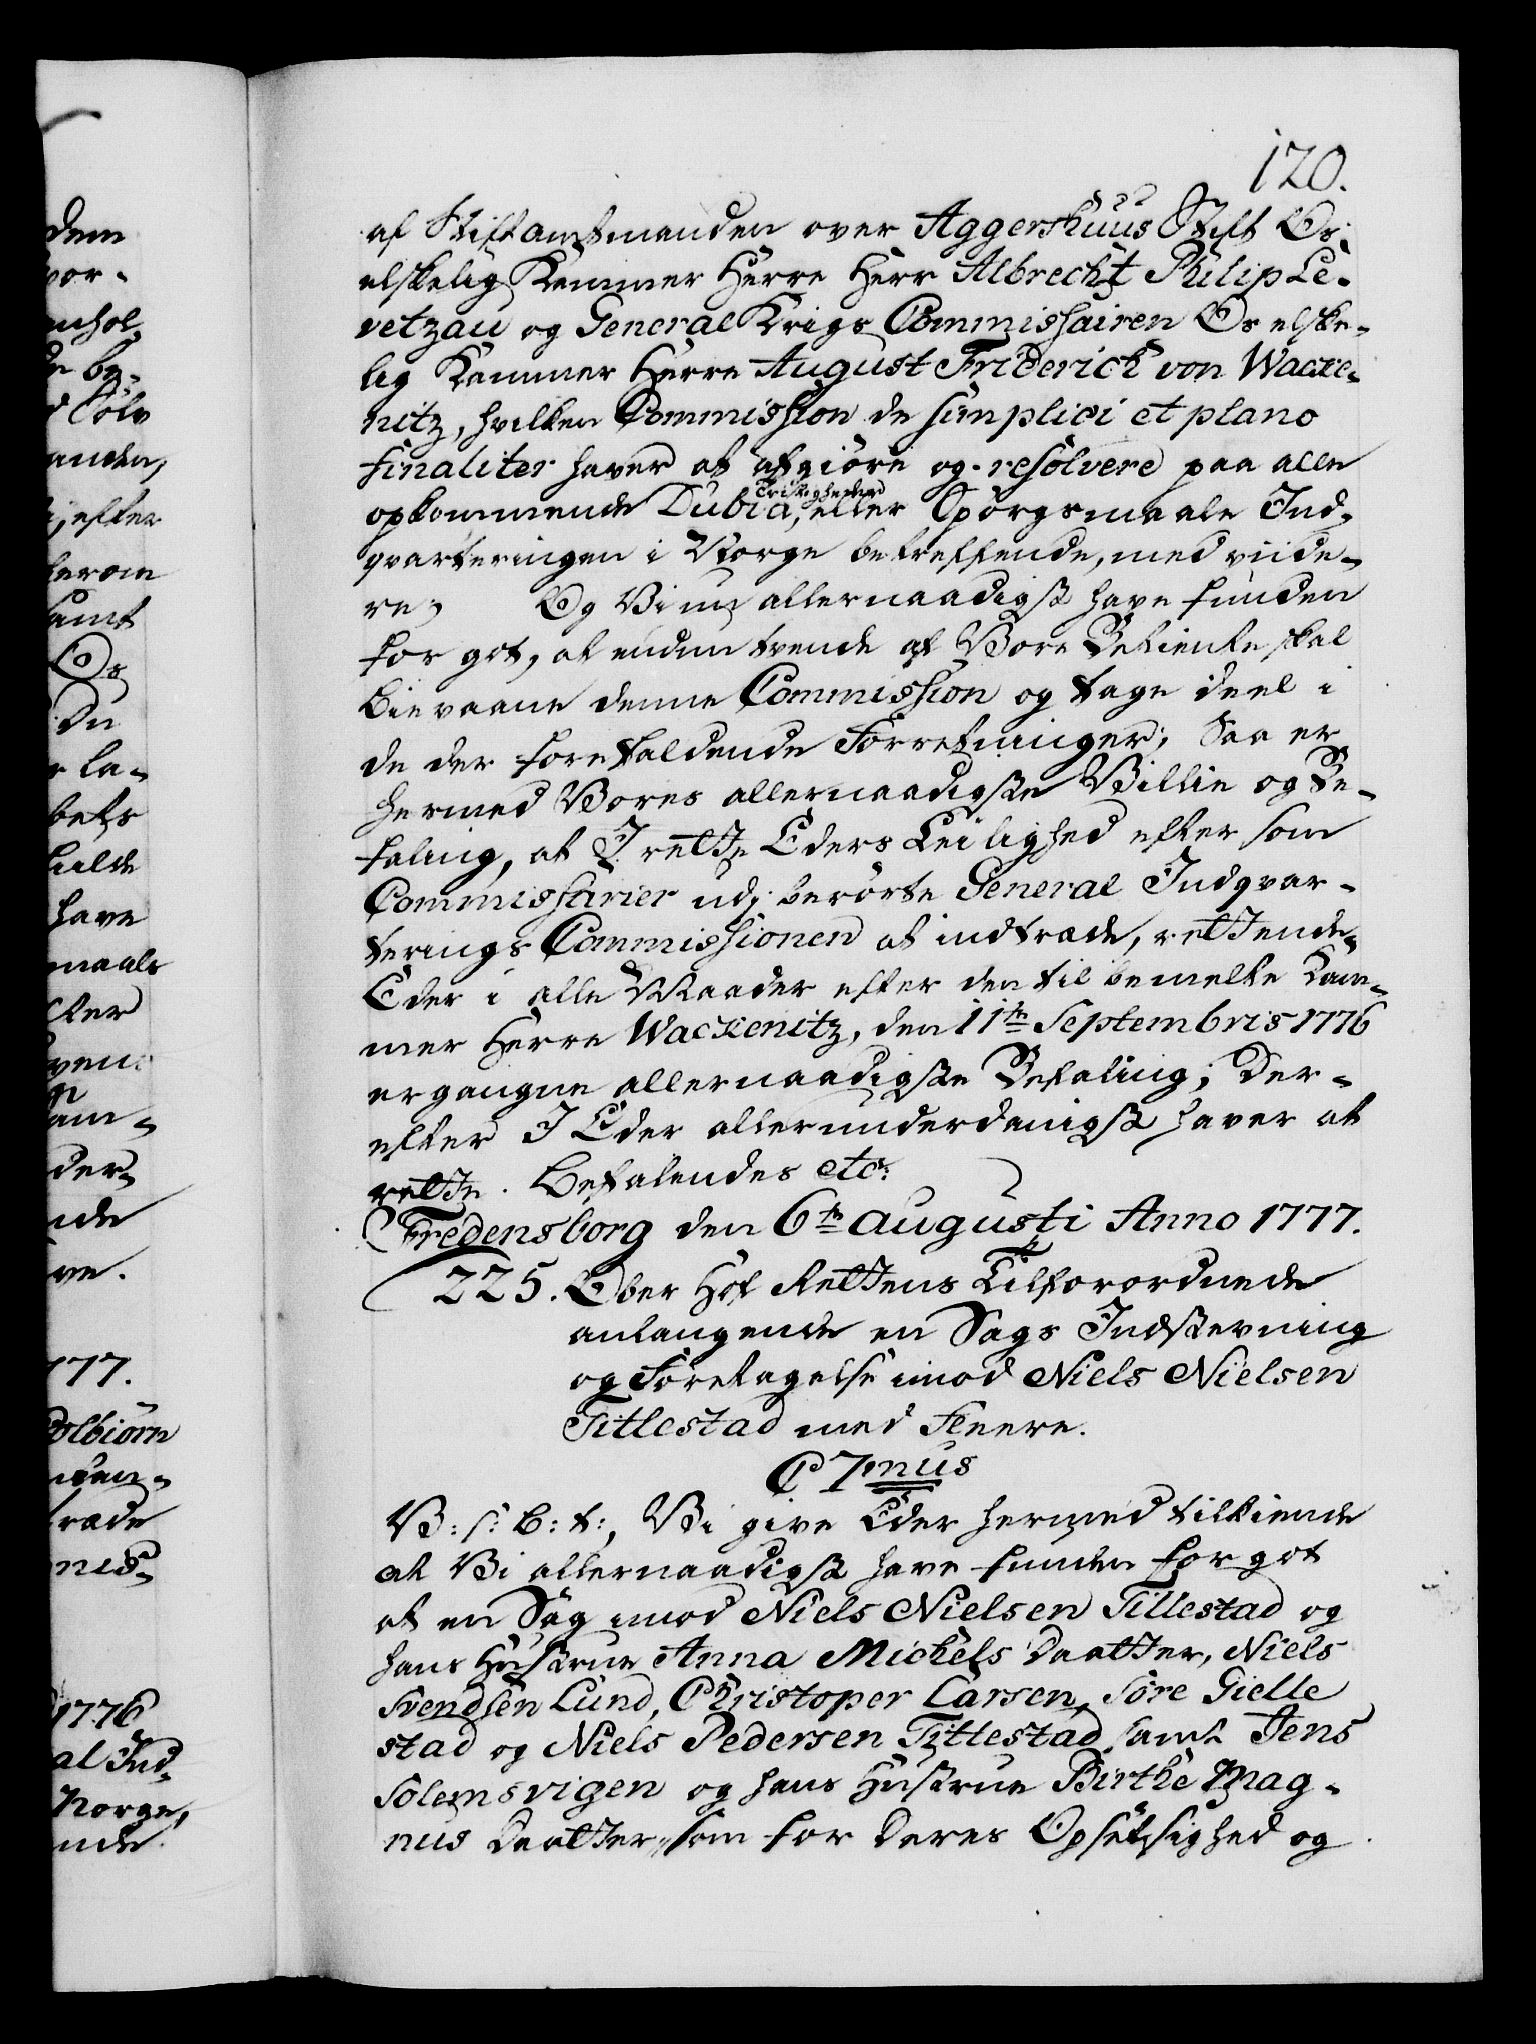 120.
af Stiftamtmanden over Aggershuus Stift Os
elskelig Kammer Herre Herr Albrecht Philip Le-
vetzau og General Krigs Commissairen Os elske-
lig Kammer Herre August Friderich von Wacke-
nitz, hvilken Commission de simplici et plano
finaliter haver at afgiöre og resolvere paa alle
opkommende Dubia, Tvistigheder eller Spörgsmaale Ind-
qvarteringen i Norge betreffende, med viide-
re; Og Vi nu allernaadigst have funden
for got, at endnu tvende af Vore Betiente skal
bievaane denne Commission og tage deel i
de der forefaldende Forretninger; Saa er
hermed Vores allernaadigste Villie og Be-
faling, at I rette Eders Leilighed efter som
Commissarier udj berörte General Indqvar-
terings Commissionen at indtræde, rettende
Eder i alle Maader efter den til bemelte Kam-
mer Herre Wackenitz, den 11te Septembris 1776
ergangne allernaadigste Befaling; Der-
efter I Eder allerunderdanigst haver at
rette. Befalendes etc:
Fredensborg den 6te Augusti Anno 1777.
225. Ober Hof Rettens Tilforordnede
anlangende en Sags Indstevning
og Foretagelse imod Niels Nielsen
Tittlestad med Fleere.
C 7mus
V: s: B: t:, Vi give Eder hermed tilkiende
at Vi allernaadigst have funden for got
at en Sag imod Niels Nielsen Tillestad og
hans Hustrue Anna Michels Daatter, Niels
Svendsen Lund, Christoper Larsen, Söre Gielle
stad og Niels Pedersen Tittestad samt Jens
Solemsvigen og hans Hustrue Birthe Mag-
nus Daatter, som for deres Opsetsighed og
dem
vor-
Sölv
anden,
efter
herom
samt
Os
Du
la-
have
maals
der-
ve.
1777.
træde
1776
al Ind-
Norge,